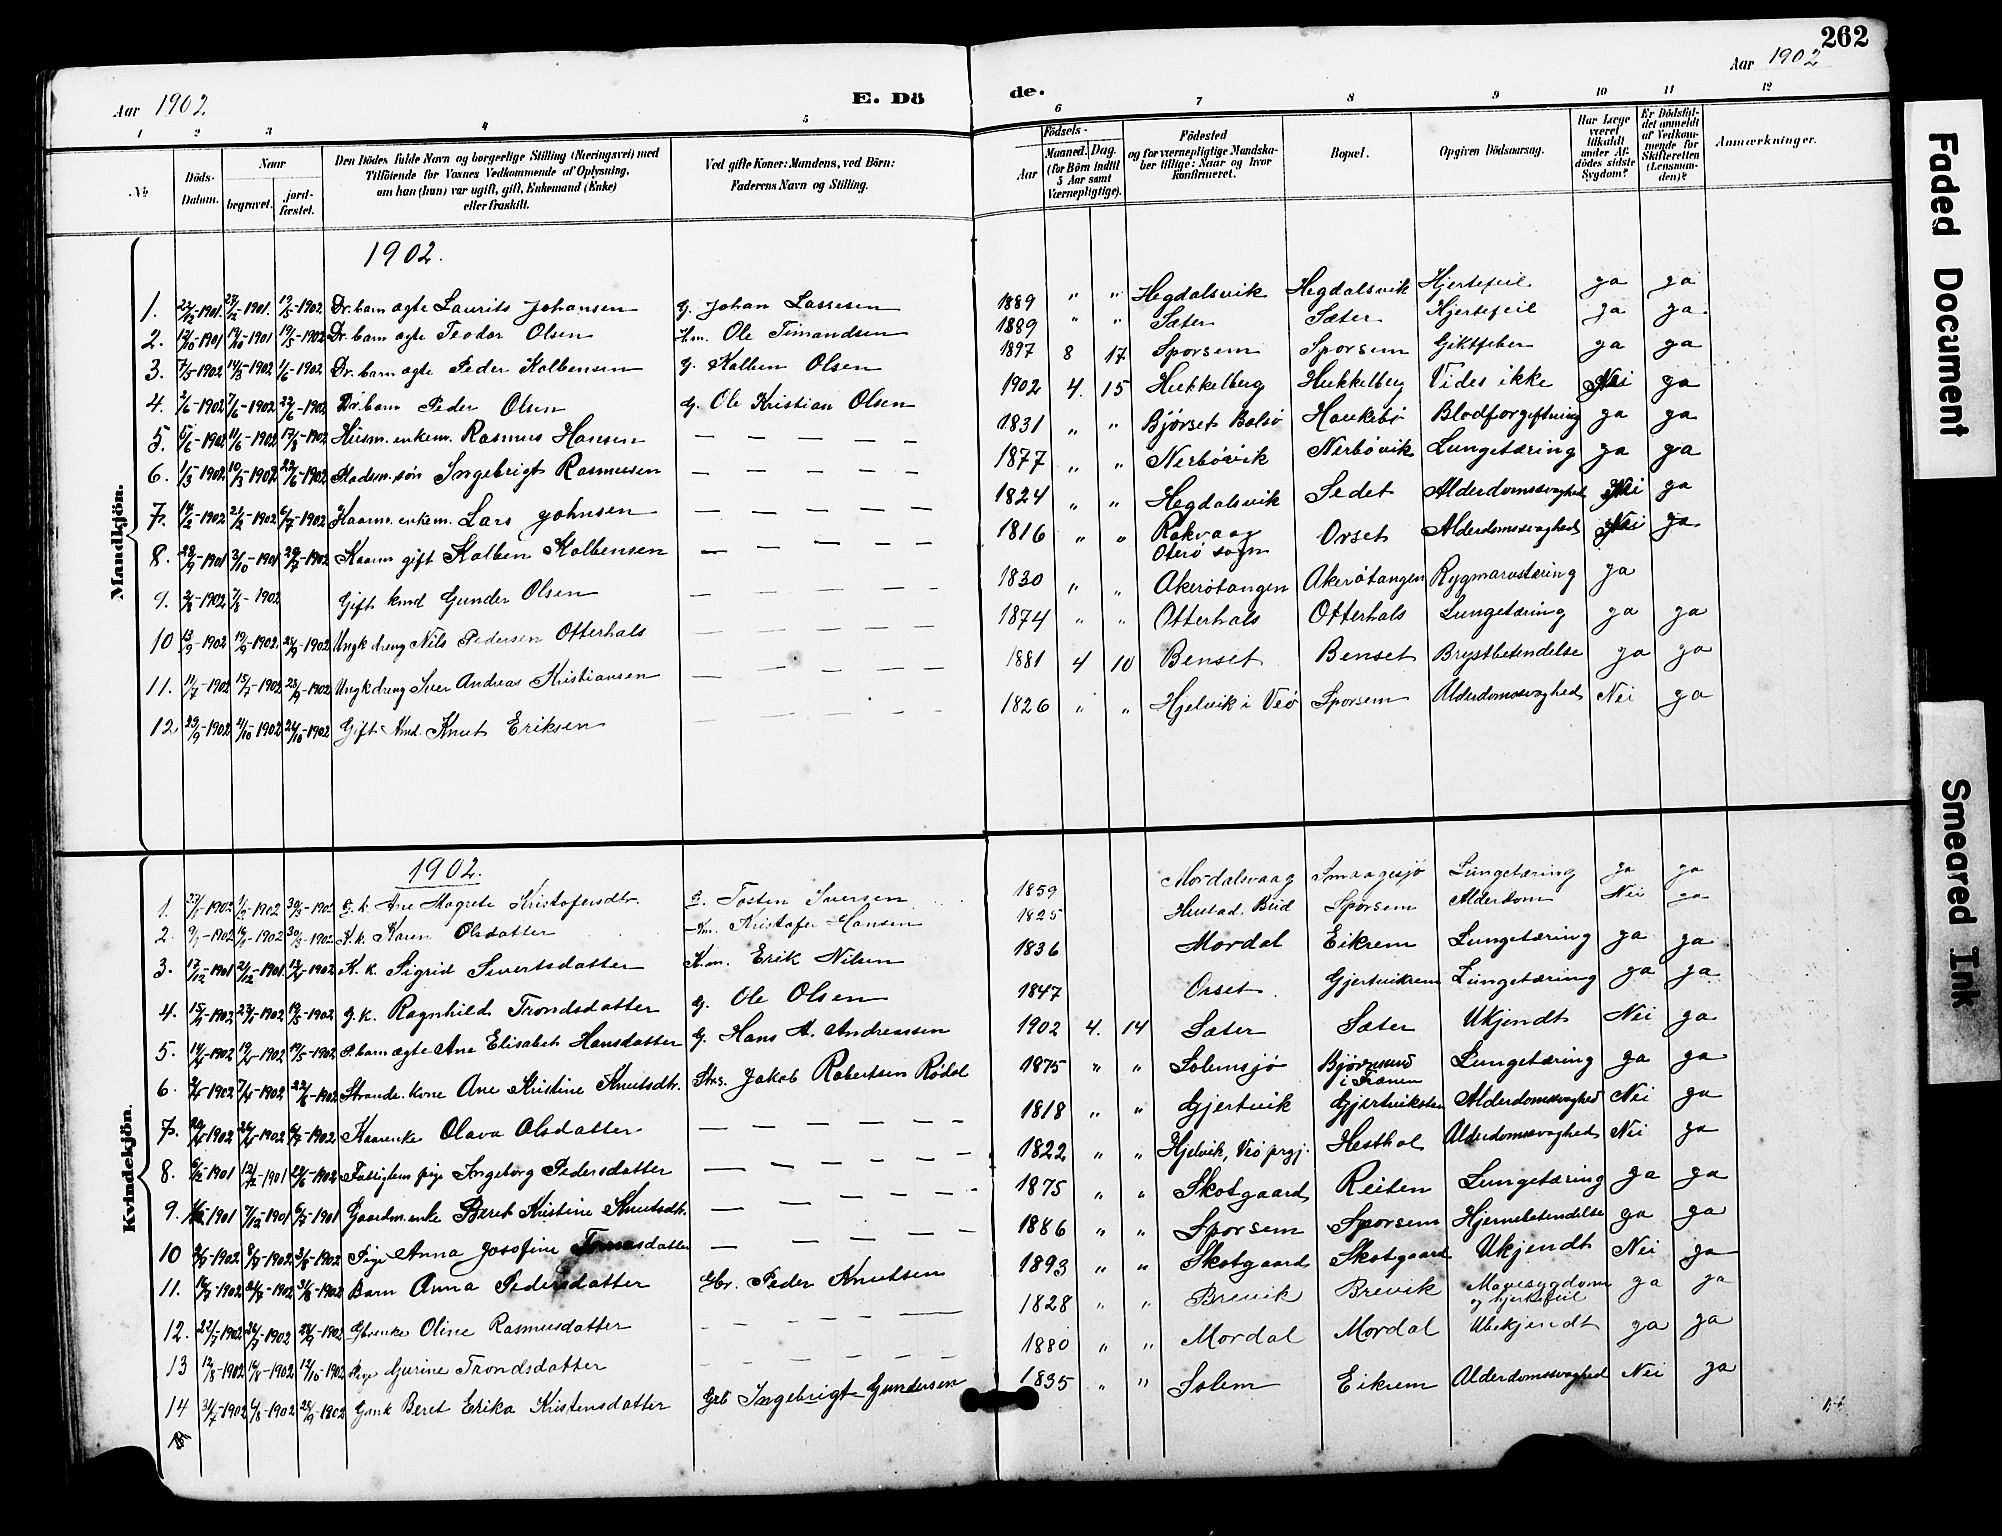 262
Aar 1902
E. Dö
de.
Aar 1902
1 2 3 4 5 6 7 8 9 10 11 12
No.
Döds-Datum.
Naar
begravet.
jord-fæstet.
Den Dödes fulde Navn og borgerlige Stilling (Næringsvei) med
Tilföiende for Voxnes Vedkommende af Oplysning,
om han (hun) var ugift, gift, Enkemand (Enke)
eller fraskilt.
Ved gifte Koner: Mandens, ved Börn:
Faderens Navn og Stilling.
Födsels-
Aar
Maaned. Dag.
(for Börn indtil
5 Aar samt
Værnepligtige).
Födested
og for værnepligtige Mandska-
ber tillige: Naar og hvor
konfirmeret.
Bopæl.
Opgiven Dödsaarsag.
Har Læge
været
tilkaldt
under Af-
dödes sidste
Sygdom?
Er Dödsfal-
det anmeldt
af Vedkom-
mende for
Skifteretten
(Lensman-
den)?
Anmærkninger.
Mandkjön.
1902.
1. 22/12-1901. 1902. Dr. barn ægte Laurits Johansen G. Johan Lassesen 1889 " " Hegdalsvik Hegdalsvik Hjertefeil ja ja
2. 1901 1901 1902 Dr. barn ægte Teodor Olsen Ole Timandsen 1889 " " Sæter Sæter Hjertefeil ja ja.
3. 7/5-1902 14/5-1902 1/6-1902 Dr. barn ægte Peder Kolbensen G. Kolben Olsen 1897 8 17 Sporsem Sporsem Giktfeber ja ja
4. 2/6-1902 7/6-1902 22/6-1902 Dr. barn Peder Olsen G. Ole Kristian Olsen 1902 4. 15 Hukkelberg Hukkelberg Vides ikke Nei ja
5. 1902 11/6-1902 1902 Husm. enkem. Rasmus Hansen — — — — — 1831 " " Bjørset Bolsø Haukebø Blodforgiftning ja ja
6. 1/3-1902 10/3-1902 22/6-1902 søn Ingebrigt Rasmusen — — — — — 1877 " " Nerbøvik Nerbøvik Lungetæring ja ja
7. 14/2-1902 21/2-1902 6/7-1902 Kaarm. enkem. Lars Johnsen — — — — — 1824 " " Hegdalsvik Sedet Alderdomssvaghed Nei ja
8. 1901 3/10-1901 1902 Kaarm gift Kolben Kolbensen — — — — — 1816 " " Rakvaag Oterø sogn Orset Alderdomssvaghed Nei ja
9. 2/8-1902 7/8-1902 Gift kmd Gunder Olsen — — — — — 1830 " " Akerøtangen Akerøtangen Rygmarvstæring ja
10 13/9-1902 19/9-1902 1902 Ungk dreng Nils Pedersen Otterhals — — — — — 1874 " " Otterhals Otterhals Lungetæring ja ja
11. 11/7-1902 15/7-1902 1902 Ungk dreng Iver Andreas Kristiansen — — — — — 1881 4 10 Benset Benset Brystbetendelse ja ja
12 29/9-1902 4/10-1902 26/10-1902 Gift Kmd. Knut Eriksen — — — — — 1826 " " Hjelvik i Veø Sporsem Alderdomssvaghed Nei ja
Kvindekjön.
1902.
1. 1902 1902 1902 G. k. Ane Magrete Kristofersdtr. G. Tosten Iversen 1859 Mordalsvaag Smaagesjø Lungetæring ja ja
2. 9/1-1902 1902 30/3-1902 K. k. Karen Olsdatter Km. Kristofer Hansen 1825 Hustad. Bud Sporsem Alderdom Nei ja
3. 17/12-1901 21/12-1901. 1902 K. k. Sigrid Sivertsdatter K.m. Erik Nilsen 1836 Mordal Eikrem Lungetæring ja ja
4. 1902 1902 19/5-1902 G. k. Ragnhild Trondsdatter G. Ole Olsen 1847 Orset Gjertvikrem Lungetæring ja ja
5. 1902 1902 19/5-1902 barn ægte Ane Elisabet Hansdatter G. Hans A. Andreassen 1902 4. 14 Sæter Sæter Ukjendt Nei ja
6. 1902 7/4-1902 22/6-1902 Strands. kone Ane Kristine Knutsdtr. Strs. Jakob Robertsen Rødal 1875 " " Solemsjø Bjørnsund i Franen Lungetæring ja ja
7. 1902 1902 6/7-1902 Kaarenke Olava Olsdatter — — — — — 1818 " " Gjertvik Alderdomssvaghed Nei ja
8. 1901 1901 1902 pige Ingeborg Pedersdatter — — — — — 1822 " " Hjelvik, Veø prgj. Hesthol Alderdomssvaghed Nei ja
9. 1901 7/12-1901 6/7-1901 Gaardm. enke Beret Kristine Knutsdtr. — — — — — 1875 " " Skotgaard Reiten Lungetæring ja ja
10 1902 1902 1902 Pige Anna Josofine — — — — — 1886 " " Sporsem Sporsem Hjernebetendelse ja ja
11. 1902 1902 1902 Barn Anna Pedersdatter Gbr. Peder Knutsen 1893 " " Skotgaard Skotgaard Ukjendt Nei ja
12. 22/7-1902 1902 1902 Gbrenke Oline Rasmusdatter — — — — — 1828 " " Brevik Brevik Mavesygdom og hjertefeil ja ja
13 12/8-1902 1902 12/10-1902 Pige Gurine Trondsdatter — — — — — 1880 " " Mordal Mordal Ubekjendt ja ja
14 31/7-1902 6/8-1902 1902 Beret Erika Kristensdatter Gbr Ingebrigt Gundersen 1835 " " Solem Eikrem Alderdomssvaghed Nei ja
15
Faded Document
Smeared Ink